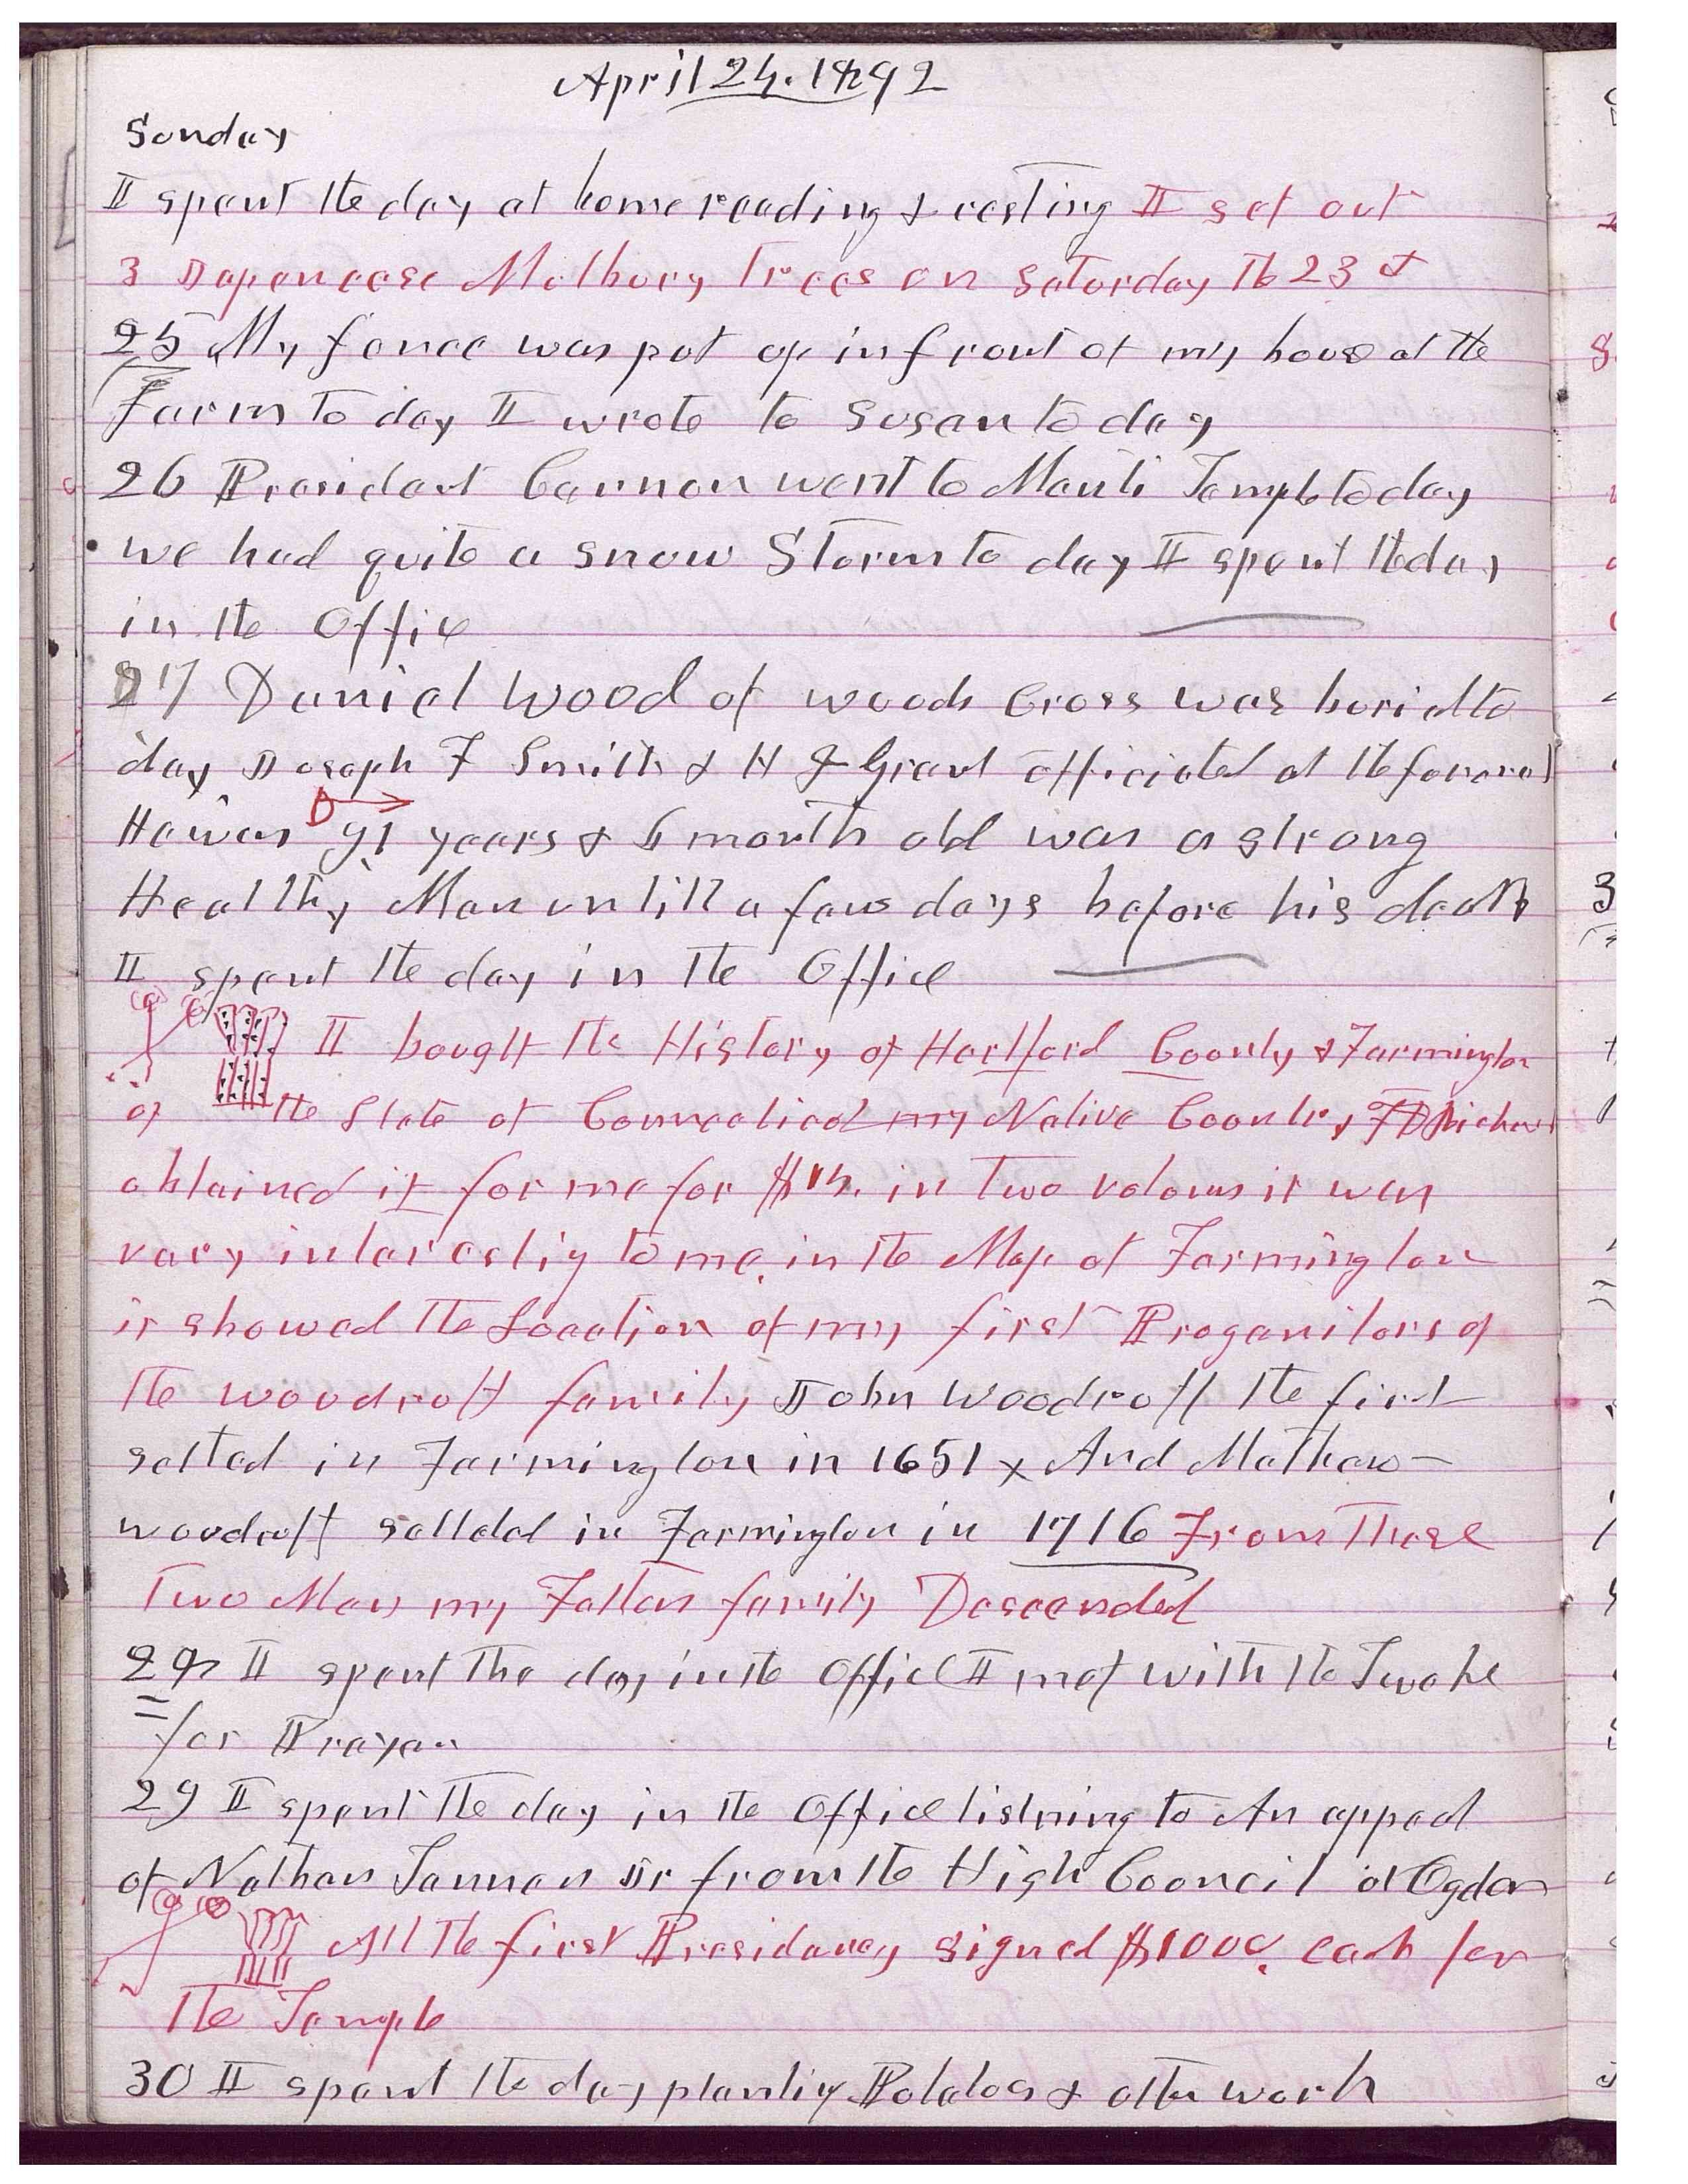 April 24. 1892
Sunday
I spent the day at home reading & resting I set out
3 Japeneese Mulbury Trees on Saturday Th 23 d
25 My fence was put up in front of my house at the
Farm To day I wrote to Susan to day
26 President Cannon went to Manti Temple to day
we had quite a snow Storm to day I spent the day
in the Office
27 Daniel Wood of woods Cross was burid to
day Joseph F Smith & H J Grant officiated at the funeral
He was 91 years & 6 month old was a strong
Healthy Man untill a few days before his death
I spent the day in the Office
I bought the History of Hartford County & Farmington
of the State of Connecticut my Native Country F D Richards
obtained it for me for $15. in Two volums it was
vary interestig to me. in the Map of Farmington
it showed the Location of my first Progenitors of
the woodruff family John Woodruff the first
settled in Farmington in 1651 x And Mathew
woodruff settled in Farmington in 1716 From These
Two Men my Fathers family Descended
28 I spent the day in the Office I met with the Twelve
for Prayer
29 I spent the day in the Office listning to An appeal
of Nathan Tanner Jr from the High Council at Ogden
All the first Presidency signed $1000. each for
the Temple
30 I spent the day plantig Potatoes & other work